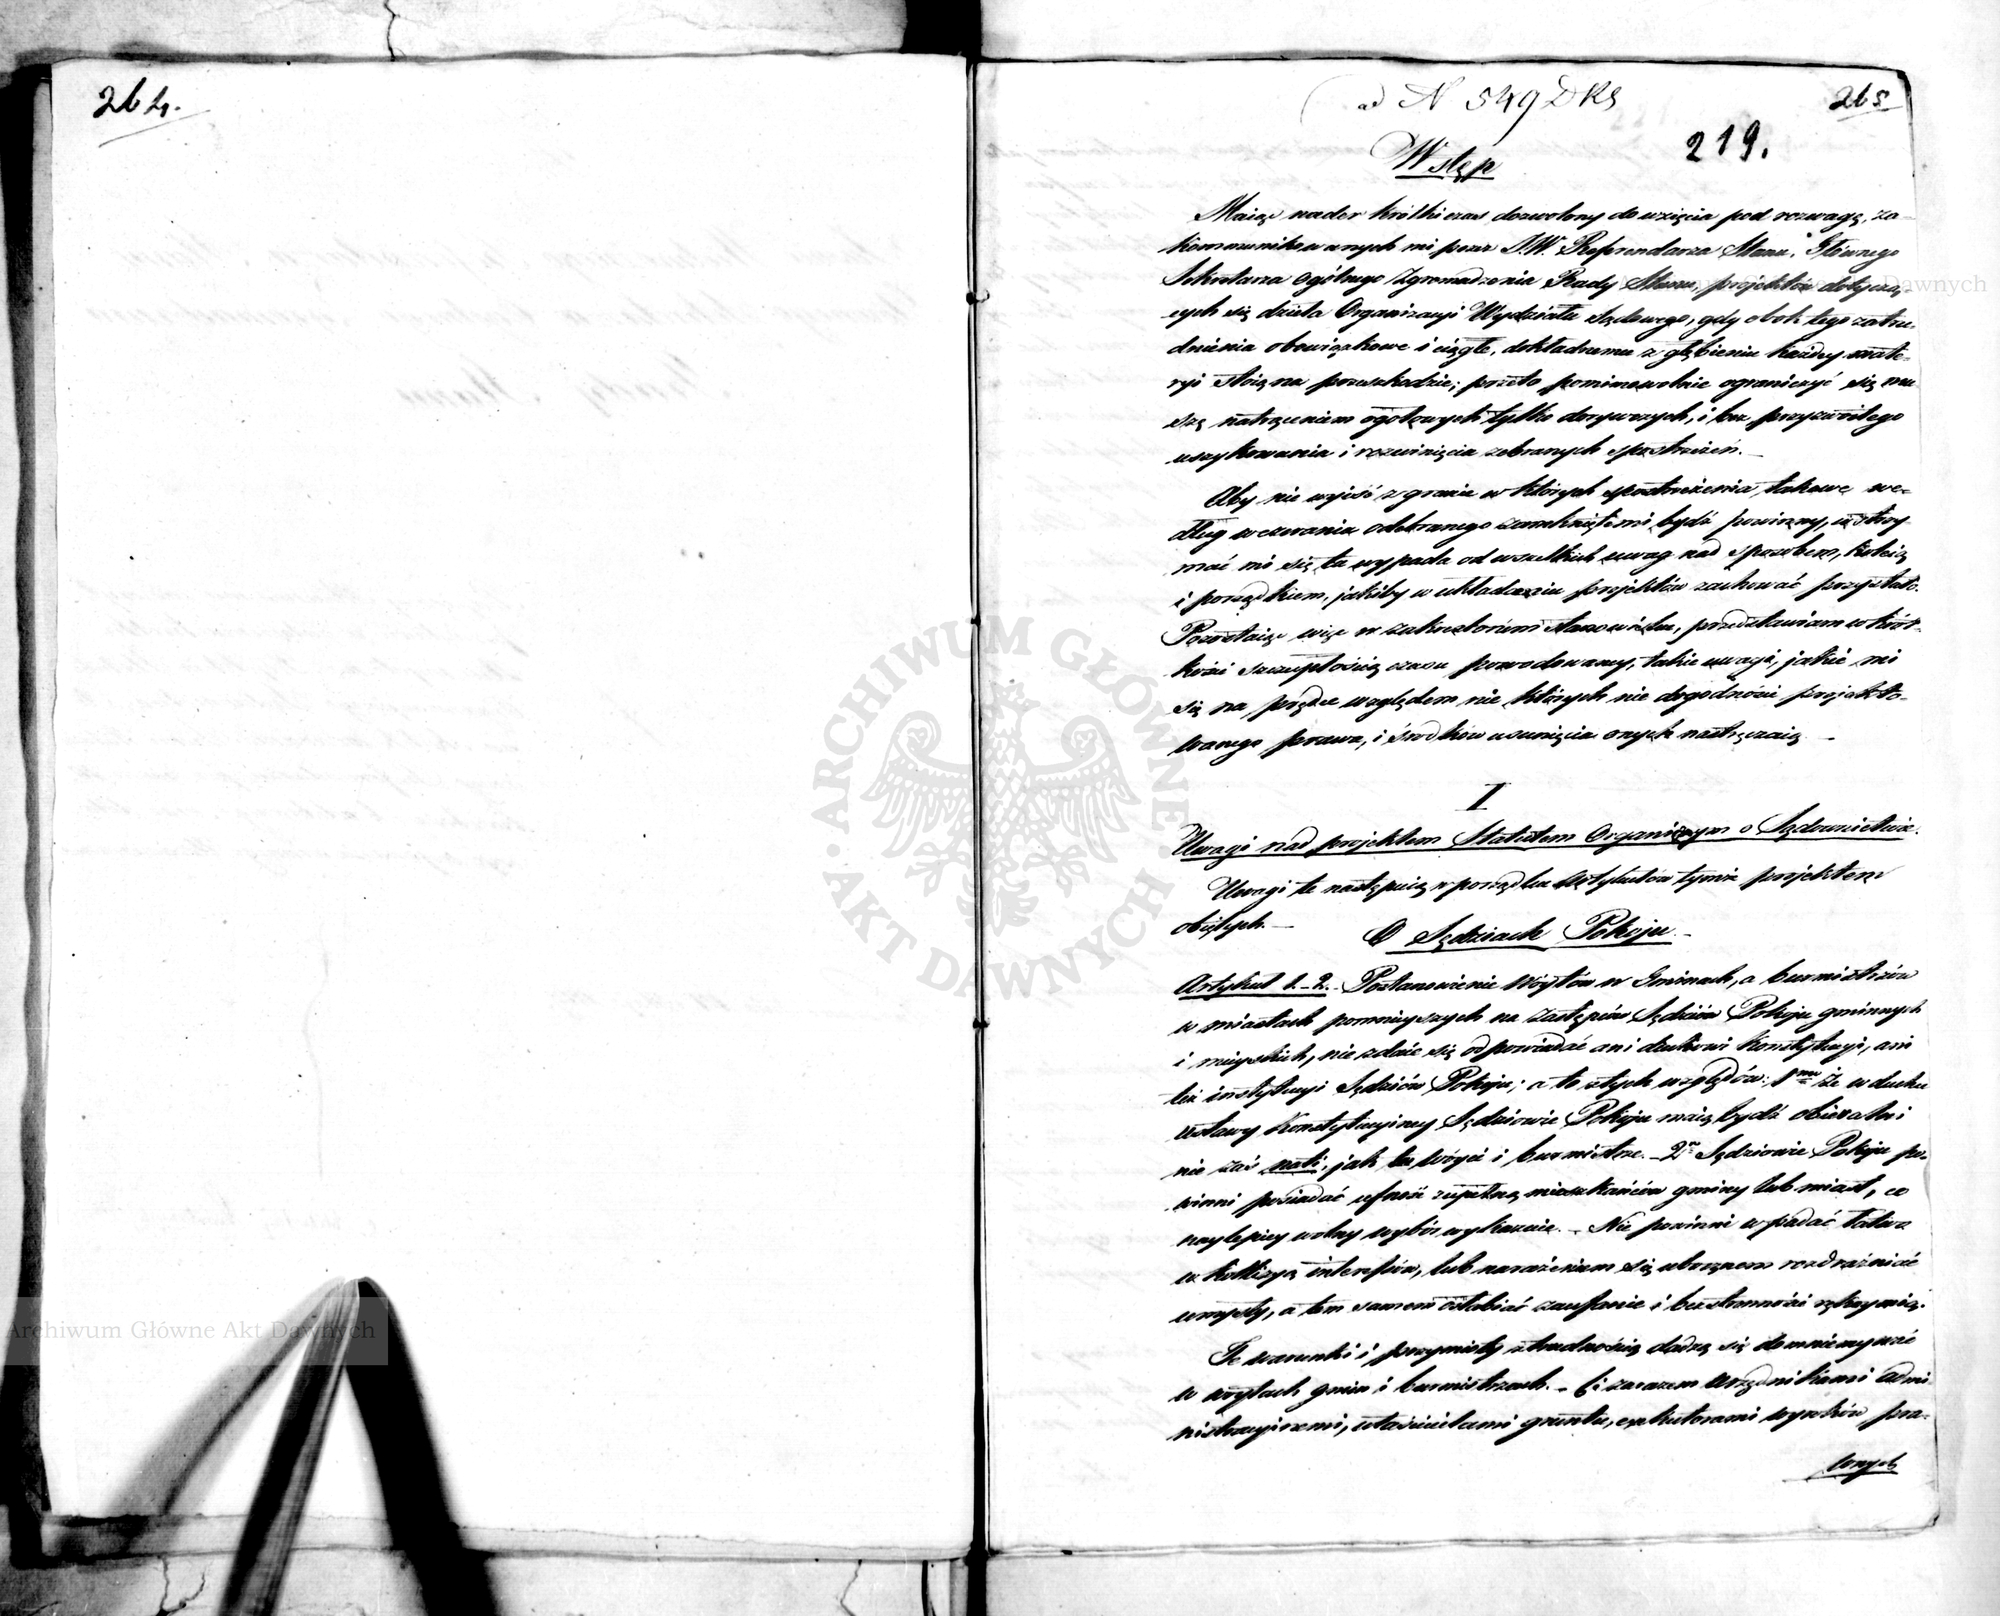 264.
ad N 549 DKS
265
219.
Wstęp
Maiąc nader krótki czas dozwolony do wzięcia pod rozwagę, za-
kommunikowanych mi przez J.W. Referendarza Stanu, Głównego
Sekretarza Ogólnego Zgromadzenia Rady Stanu, projektów dotyczą-
cych się dzieła Organizacyi Wydziału Sądowego, gdy obok tego zatru-
dnienia obowiązkowe i ciągłe, dokładnemu zgłębieniu każdey mate-
ryi stoią na przeszkodzie; przeto pomimowolnie ograniczyć się mu-
szę natrąceniem ogółowych tylko dorywczych, i bez przyzwoitego
uszykowania i rozwinięcia zebranych spostrzeżeń. —
Aby nie wyiść z granic w których spostrzeżenia takowe we-
dług wezwania odebranego zamkniętemi bydź powinny, wstrzy-
mać mi się tu wypada od wszelkich uwag nad sposobem, koleią
i porządkiem, jakiby w układaniu projektów zachować przystało.
Pozostaiąc więc w zakreślonem stanowisku, przedstawiam w krót-
kości szczupłością czasu powodowany, takie uwagi, jakie mi
się na prędce względem nie których nie dogodności projekto-
wanego prawa, i środków usunięcia onych nastręczaią. —
I
Uwagi nad projektem Statutem Organicznym o Sądownictwie.
Uwagi te następuią w porządku Artykułów tymże projektem
obiętych. —
O Sędziach Pokoju. —
Artykuł 1.–2. Postanowienie Wóytów w Gminach, a burmistrzów
w miastach pomnieyszych na Zastępców Sędziów Pokoju gminnych
i mieyskich, nie zdaie się odpowiadać ani duchowi Konstytucyi, ani
też instytucyi Sędziów Pokoju; a to z tych względów: 1mo Że w duchu
ustawy Konstytucyiney Sędziowie Pokoju maią bydź obieralni
nie zaś stali, jak są Wóyci i burmistrze. – 2o Sędziowie Pokoju po-
winni posiadać ufność zupełną mieszkańców gminy lub miast, co
naylepiey wolny wybór wykazuie. – Nie powinni wpadać łatwo
w kollizyą interessów, lub narażeniem się ubocznem rozdrażniać
umysły, a tem samem osłabiać zaufanie i bezstronności rękoymią.
Te warunki i przymioty z trudnością dadzą się domniemywać
w wóytach gmin i burmistrzach. – Ci zarazem Urzędnikami Admi-
nistracyinemi, właścicielami gruntu, exekutorami wyroków pra-
wnych
Archiwum Główne Akt Dawnych
ARCHIWUM GŁÓWNE AKT DAWNYCH